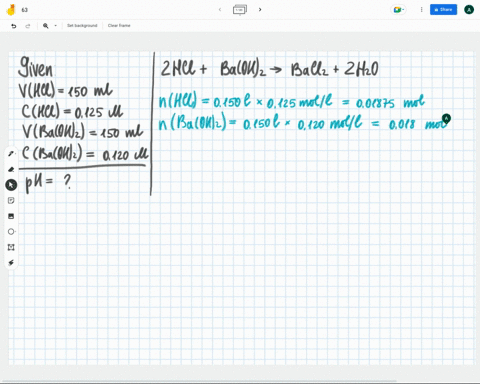 63
Set background
Clear frame
Share
A
Given
V(HCl) = 150 ml
C(HCl) = 0.125 M
V(Ba(OH)₂) = 150 ml
C(Ba(OH)₂) = 0.120 M
pH = ?
2HCl + Ba(OH)₂ → BaCl₂ + 2H₂O
n(HCl) = 0.150 l × 0.125 mol/l = 0.01875 mol
n(Ba(OH)₂) = 0.150 l × 0.120 mol/l = 0.018 mol
A